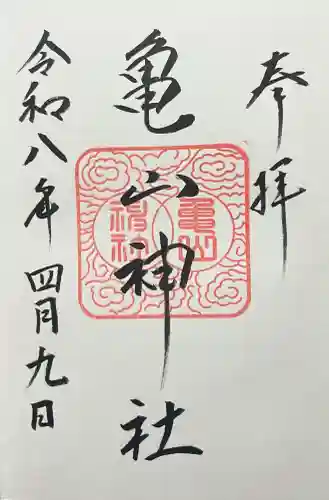 奉拝
亀山神社
令和八年四月九日
亀山
神社